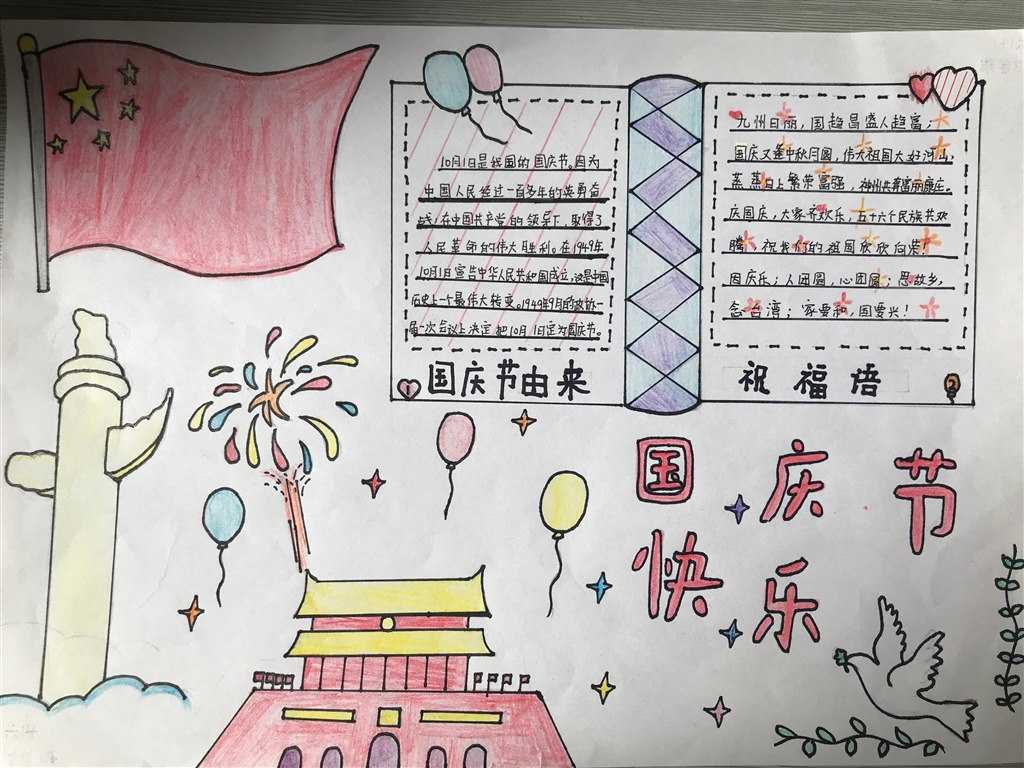 10月1日是我国的国庆节。因为
中国人民经过一百多年的英勇奋
战,在中国共产党的领导下,取得了
人民革命的伟大胜利。在1949年
10月1日宣告中华人民共和国成立,这是中国
历史上一个最伟大转变。1949年9月的政协一
届一次会议上决定把10月1日定为国庆节。
1 国庆节由来
九州日丽,国趋昌盛人趋富;
国庆又逢中秋月圆,伟大祖国大好河山,
蒸蒸日上繁荣富强,神州共奔富丽康庄。
庆国庆,大家齐欢乐,五十六个民族共欢
腾,祝我们的祖国欣欣向荣!
因庆乐;人团圆,心团圆;思故乡,
念台湾;家要和,国要兴!
祝福语 2
国庆节
快乐